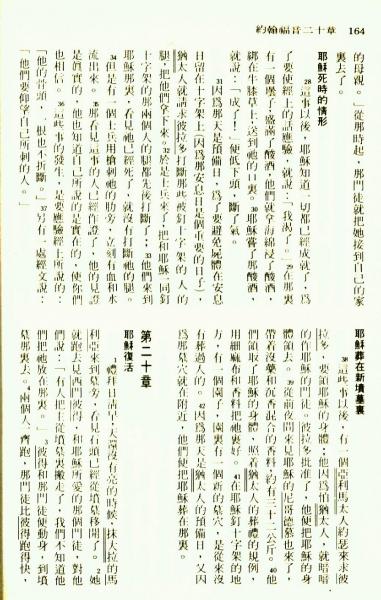 約翰福音二十章 164
的母親。」從那時起，那門徒就把她接到自己的家
裏去了。
耶穌死時的情形
28這事以後，耶穌知道一切都已經成就了，爲
了要使經上的話應驗，就說：「我渴了。」29在那裏
有一個罎子盛滿了酸酒，他們就拿海綿浸了酸酒，
綁在牛膝草上，送到祂的口裏。30耶穌嘗了那酸酒，
就說：「成了！」便低下頭，斷了氣。
31因爲那天是預備日，爲了要避免屍體在安息
日留在十字架上（因爲那安息日是個重要的日子），
猶太人就請求彼拉多打斷那些被釘十字架的人的
腿，把他們拿下來。32於是士兵來了，把和耶穌一同釘
十字架的那兩個人的腿都先後打斷了；33他們來到
耶穌那裏，看見祂已經死了，就沒有打斷祂的腿。
34但是有一個士兵用槍刺祂的肋旁，立刻有血和水
流出來。35那看見這事的人已經作證了，他的見證
是眞實的，他也知道自己所說的是實在的，使你們
也相信。36這些事的發生，是要應驗經上所說的：
「他的骨頭，一根也不折斷。」37另有一處經文說：
「他們要仰望自己所刺的人。」
耶穌葬在新墳墓裏
38這些事以後，有一個亞利馬太人約瑟來求彼
拉多，要領耶穌的身體；他因爲怕猶太人，就暗暗
的作耶穌的門徒。彼拉多批准了，他便把耶穌的身
體領去。39從前夜間來見耶穌的尼哥德慕也來了，
帶着沒藥和沉香混合的香料，約有三十二公斤。40他
們領取了耶穌的身體，照着猶太人的葬禮的規例，
用細麻布和香料把祂裹好。41在耶穌釘十字架的地
方，有一個園子，園裏有一個新的墓穴，是從來沒
有葬過人的。42因爲那天是猶太人的預備日，又因
爲那墓穴就在附近，他們便把耶穌葬在那裏。
第二十章
耶穌復活
1禮拜日清早，天還沒有亮的時候，抹大拉的馬
利亞來到墓旁，看見石頭已經從墳墓移開了。2她
就跑去見西門彼得，和耶穌所愛的那個門徒，對他
們說：「有人把主從墳墓裏搬走了，我們不知道他
們把祂放在那裏。」3彼得和那門徒便動身，到墳
墓那裏去。4兩個人一齊跑，那門徒比彼得跑得快，